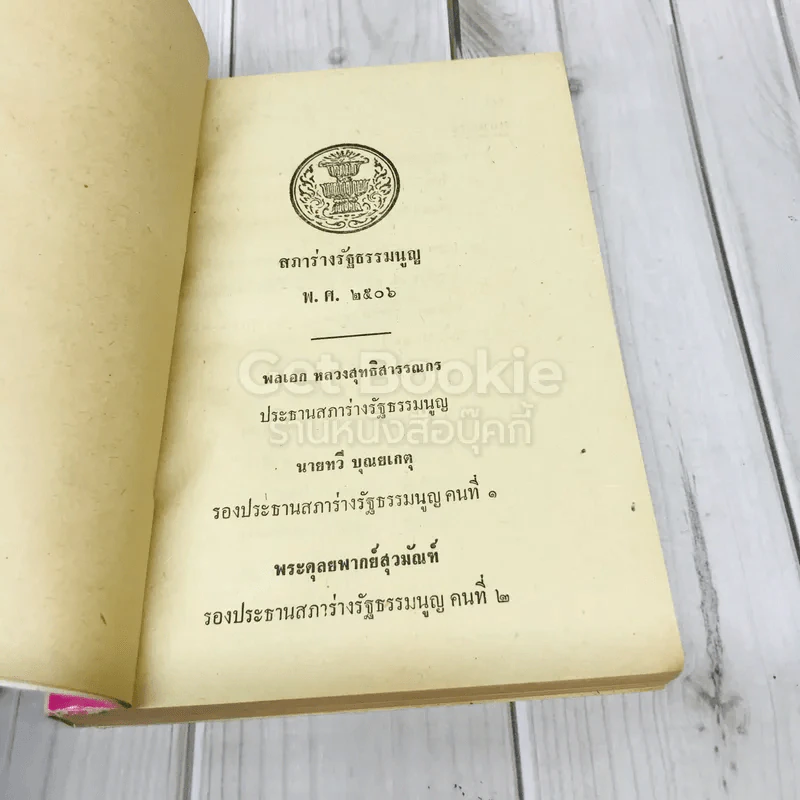 สภาร่างรัฐธรรมนูญ
พ. ศ. ๒๕๐๖
พลเอก หลวงสุทธิสารรณกร
ประธานสภาร่างรัฐธรรมนูญ
นายทวี บุณยเกตุ
รองประธานสภาร่างรัฐธรรมนูญ คนที่ ๑
พระดุลยพากย์สุวมัณฑ์
รองประธานสภาร่างรัฐธรรมนูญ คนที่ ๒
Get Bookie
ร้านหนังสือบุ๊คกี้